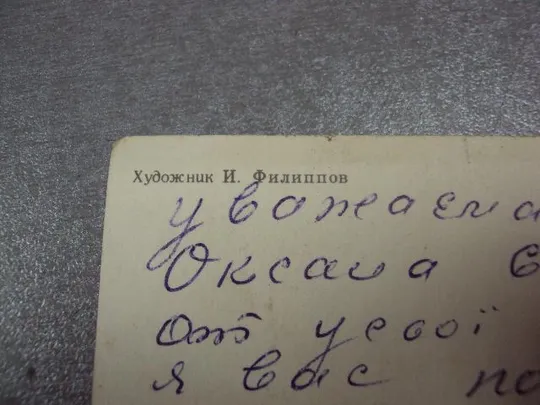 Художник И. Филиппов
уважаєма
Оксана Є
от усєої
я вас по